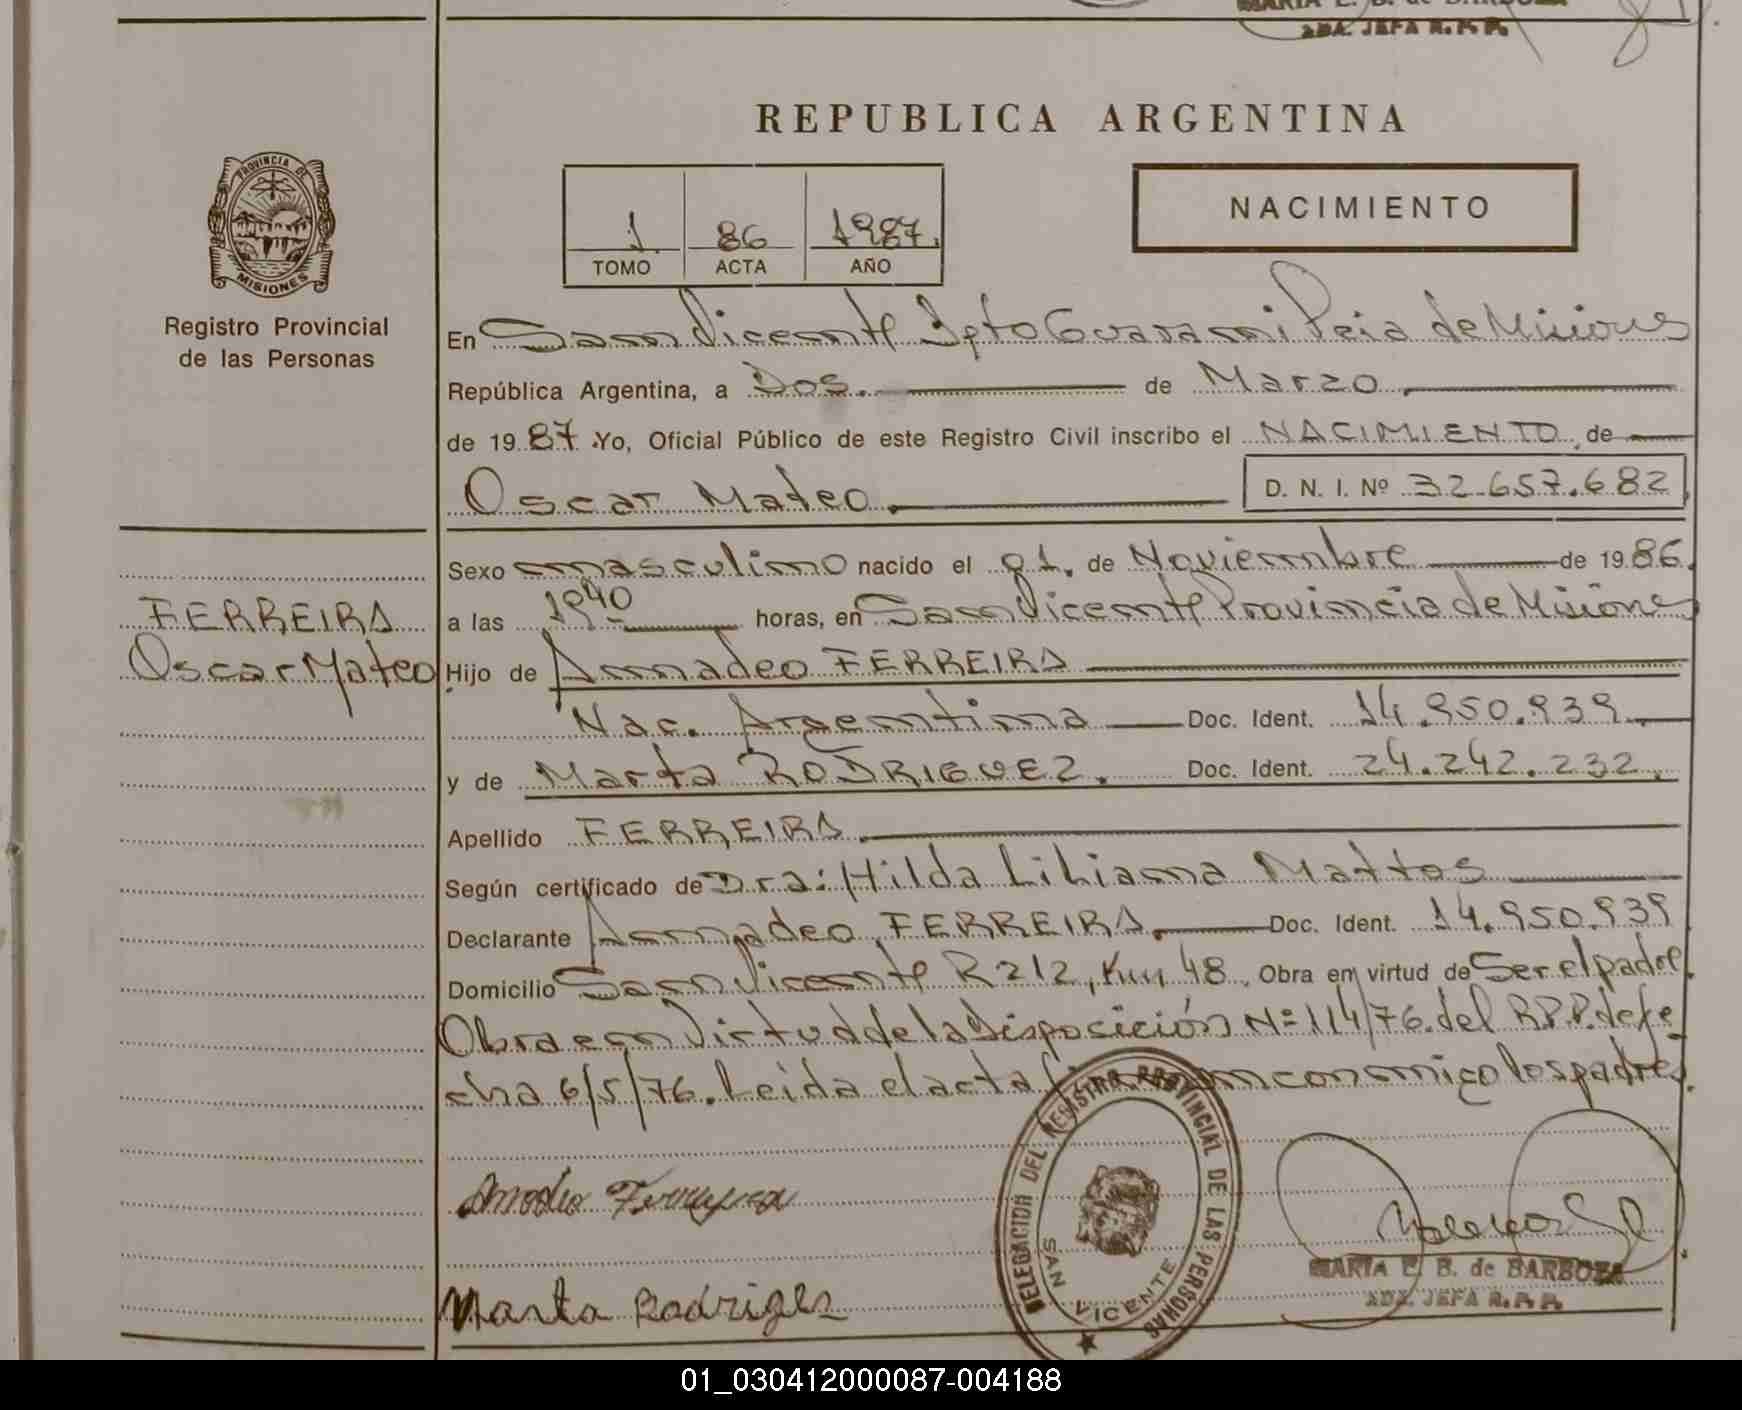 MARIA E. B. de BARBOZA
ADA. JEFA R.P.P.
REPUBLICA ARGENTINA
PROVINCIA DE
MISIONES
Registro Provincial
de las Personas
1 86 1987.
TOMO ACTA AÑO
NACIMIENTO
En San Vicente Dpto Guarani Pcia de Misiones
República Argentina, a Dos. de Marzo
de 1987. Yo, Oficial Público de este Registro Civil inscribo el NACIMIENTO de
Oscar Mateo. D. N. I. Nº 32.657.682
Sexo masculino nacido el 01. de Noviembre de 1986.
FERREIRA
a las 19 40 horas, en San Vicente Provincia de Misiones
Oscar Mateo
Hijo de Amadeo FERREIRA
Nac. Argentina Doc. Ident. 14.950.939.
y de Marta RODRIGUEZ. Doc. Ident. 24.242.232.
Apellido FERREIRA.
Según certificado de Dra: Hilda Liliana Mattos
Declarante Amadeo FERREIRA. Doc. Ident. 14.950.939
Domicilio San Vicente R 212, Km 48. Obra en virtud de Ser el padre.
Obra en Virtud de la Disposición Nº 114/76. del R.P.P. de fe
cha 6/5/76. Leida el acta firman conmigo los padres.
DELEGACION DEL REGISTRO PROVINCIAL DE LAS PERSONAS
SAN VICENTE
Amadeo Ferreyra
MARIA E. B. de BARBOZA
ADA. JEFA R.P.P.
Marta Rodriges
01_030412000087-004188